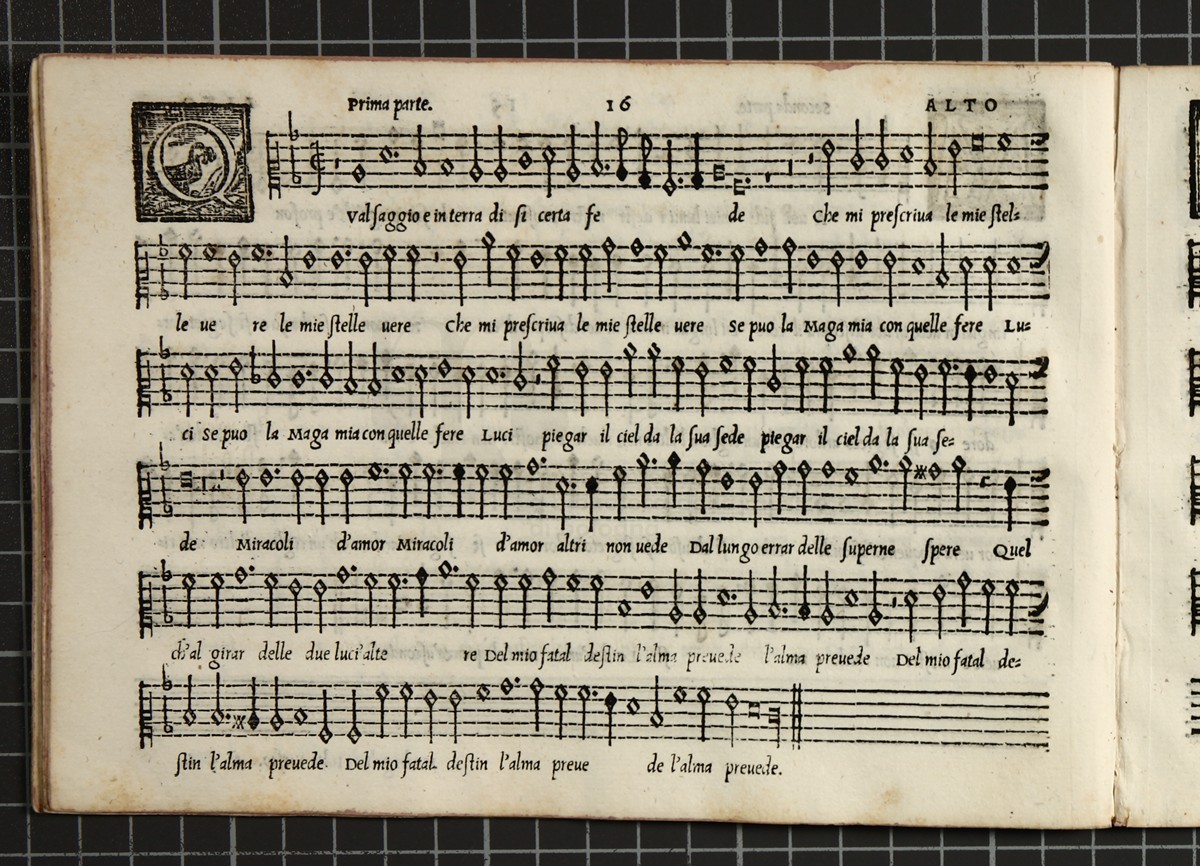 Prima parte. 16 ALTO
Q Val saggio e in terra di si certa fe de Che mi prescriua le mie stel=
le ue re le mie stelle uere Che mi prescriua le mie stelle uere Se puo la Maga mia con quelle fere Lu=
ci Se puo la Maga mia con quelle fere Luci piegar il ciel da la sua sede piegar il ciel da la sua se=
de Miracoli d'amor Miracoli d'amor altri non uede Dal lungo errar delle superne spere Quel
ch'al girar delle due luci'alte re Del mio fatal destin l'alma preuede l'alma preuede Del mio fatal de=
stin l'alma preuede Del mio fatal destin l'alma preue de l'alma preuede.